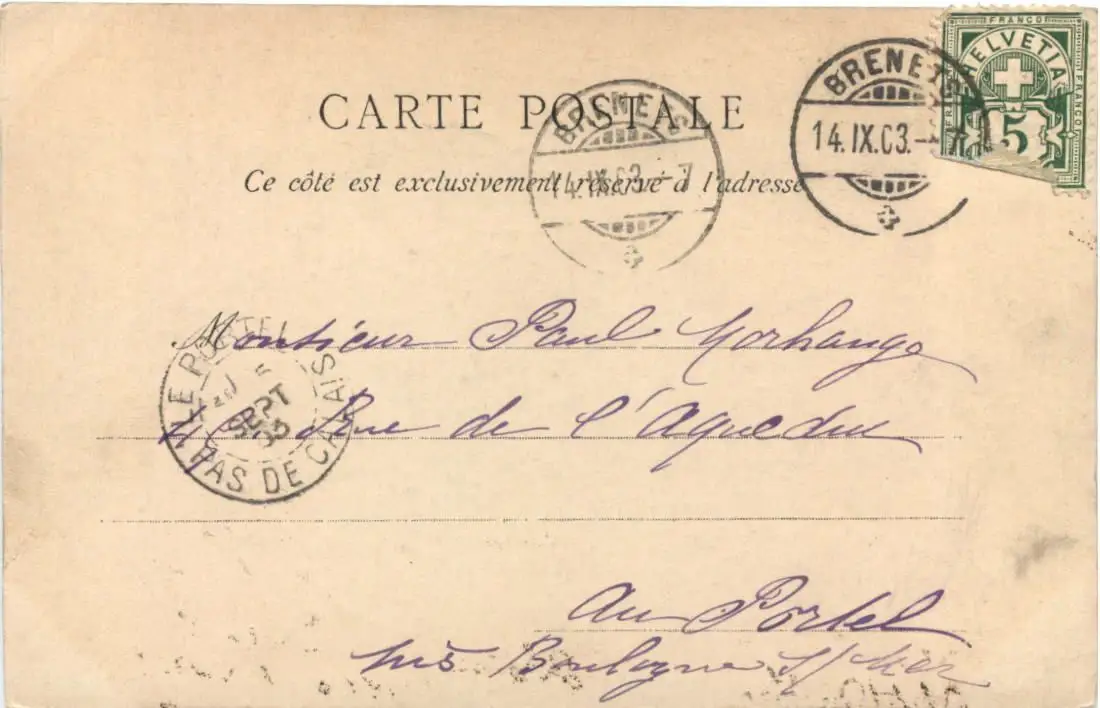 FRANCO
HELVETIA
5
FRANCO
FRANCO
BRENETS
14.IX.03.-7
CARTE POSTALE
BRENETS
14.IX.03.-7
Ce côté est exclusivement réservé à l'adresse
Monsieur Paul Morhange
Rue de l'Aqueduc
au Portel
près Boulogne s/ Mer
LE PORTEL
SEPT
03
PAS DE CALAIS